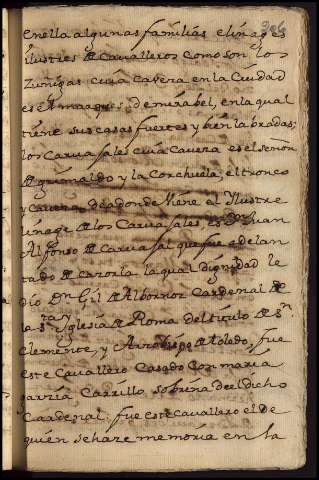 enella algunas familias e linages
ilustres de cavalleros como son los
Zuñigas cuia cavera en la Ciudad
es el marques de mirabel, en la qual
tiene sus casas fuertes y bien labradas;
los Carvaxales cuia cavera es el señor
de grimaldo y la corchuela; el tronco
y cavera de adonde viene el Ilustre
linage de los Carvaxales, es Dn. Juan
Alfonso de Carvaxal que fue adelan
tado de cazorla la qual dignidad le
dio Dn. Gil de Albornoz Cardenal de
la sta. Yglesia de Roma del titulo de Sn.
Clemente, y Arzobispo de toledo, fue
este Cavallero Casado con maria
garzia Carrillo sobrina de el dicho
Cardenal; fue este cavallero el de
quien se haze memoria en la